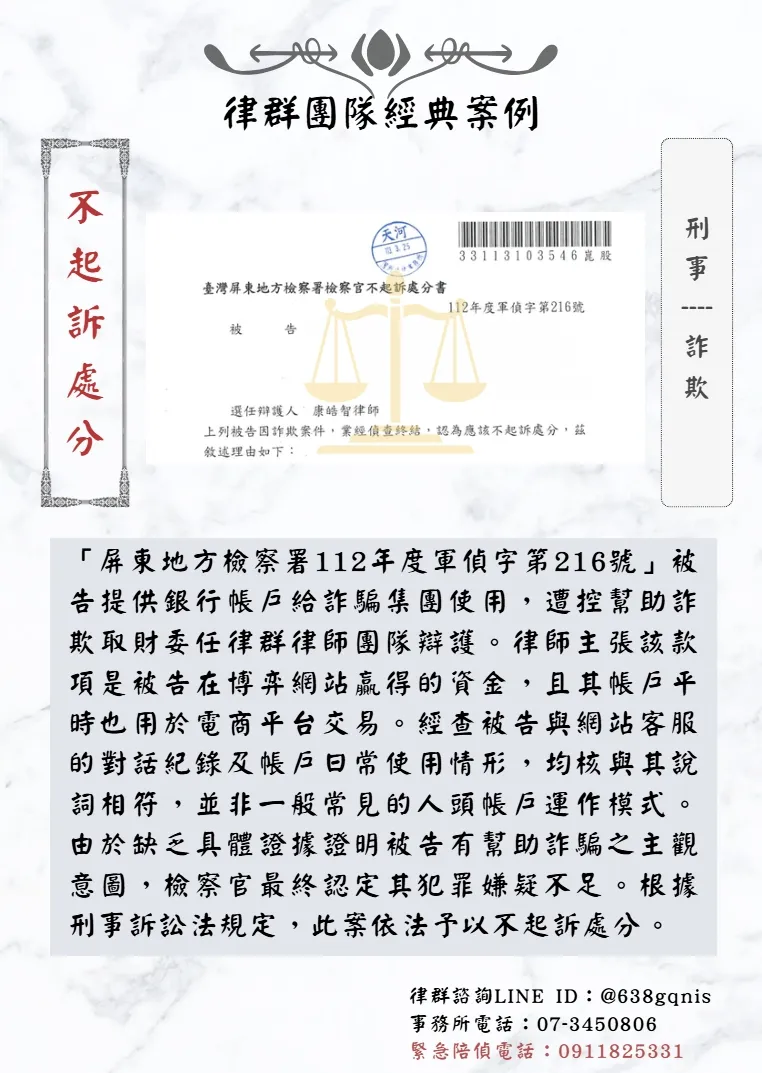 律群團隊經典案例
不起訴處分
刑事----詐欺
天河
33113103546 崑股
臺灣屏東地方檢察署檢察官不起訴處分書
112年度軍偵字第216號
被 告
選任辯護人 康皓智律師
上列被告因詐欺案件，業經偵查終結，認為應該不起訴處分，茲
敘述理由如下：
「屏東地方檢察署112年度軍偵字第216號」被
告提供銀行帳戶給詐騙集團使用，遭控幫助詐
欺取財委任律群律師團隊辯護。律師主張該款
項是被告在博弈網站贏得的資金，且其帳戶平
時也用於電商平台交易。經查被告與網站客服
的對話紀錄及帳戶日常使用情形，均核與其說
詞相符，並非一般常見的人頭帳戶運作模式。
由於缺乏具體證據證明被告有幫助詐騙之主觀
意圖，檢察官最終認定其犯罪嫌疑不足。根據
刑事訴訟法規定，此案依法予以不起訴處分。
律群諮詢LINE ID：@638gqnis
事務所電話：07-3450806
緊急陪偵電話：0911825331